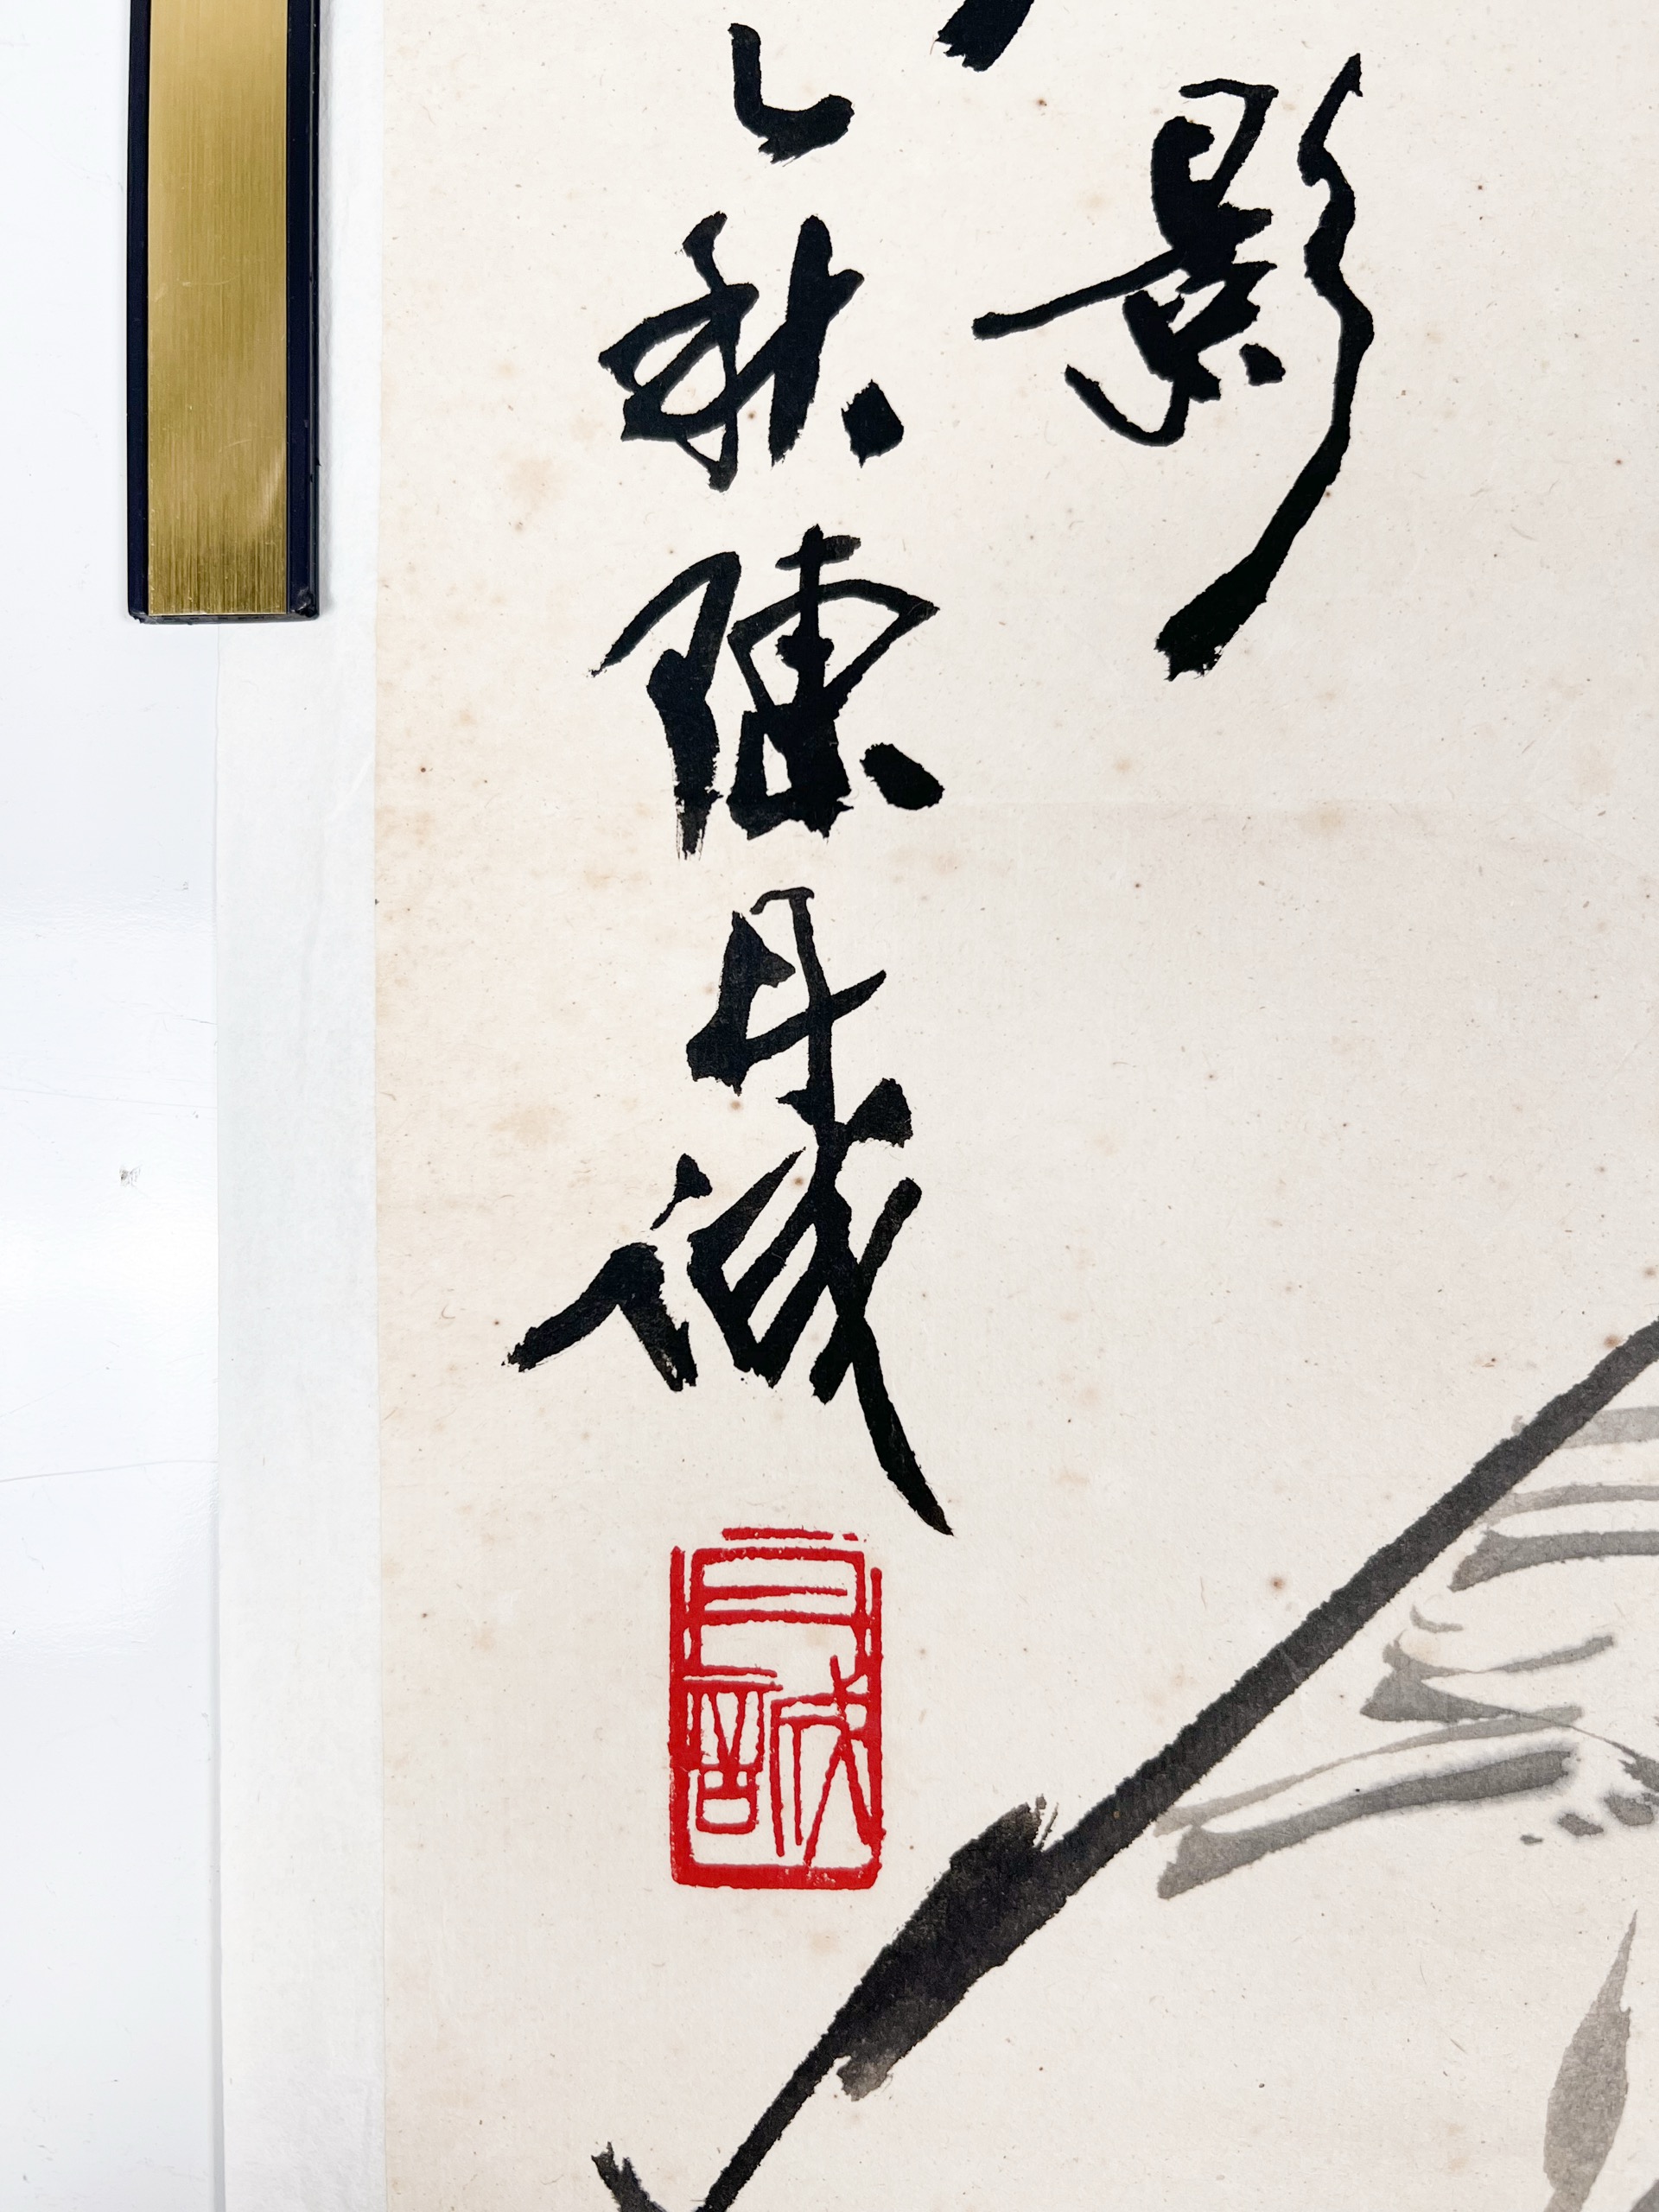 影
秋陳丹誠
丹誠